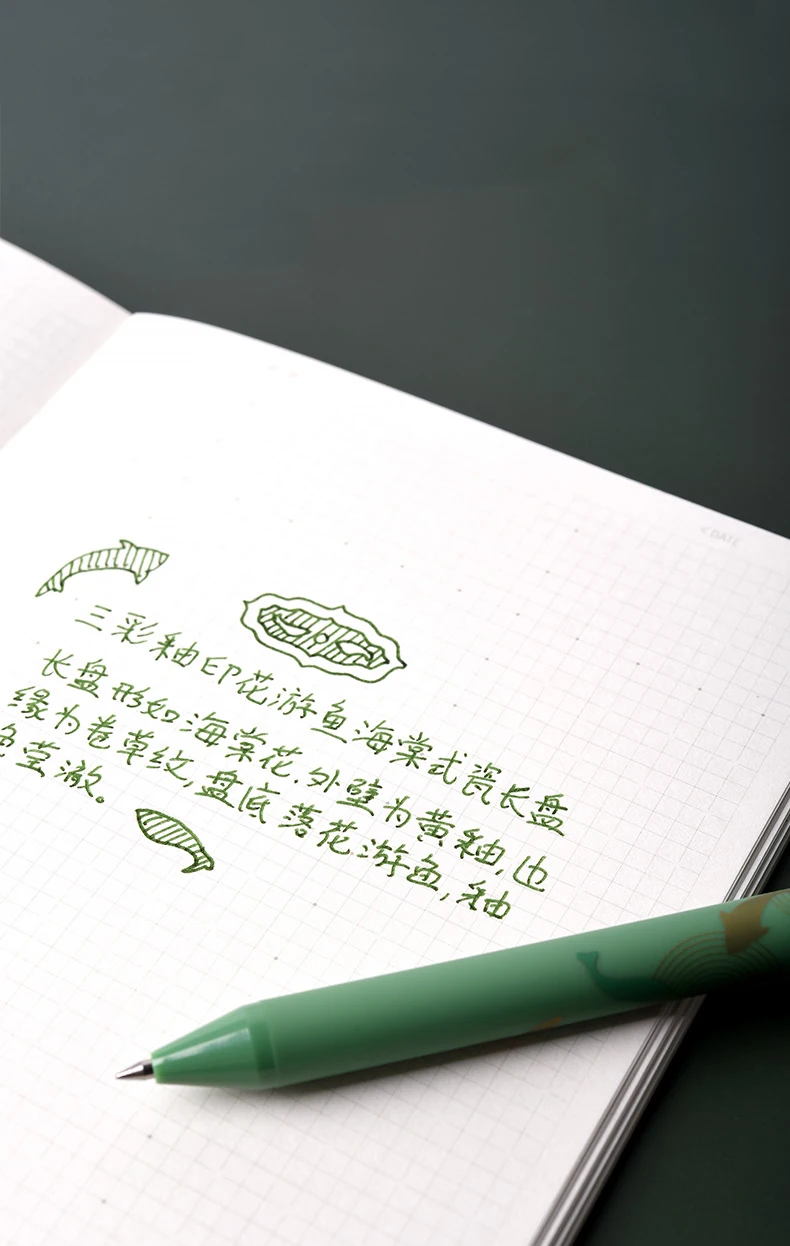 <DATE
三彩釉印花游鱼海棠式瓷长盘
长盘形如海棠花.外壁为黄釉,边
缘为卷草纹,盘底落花游鱼,釉
色莹澈。